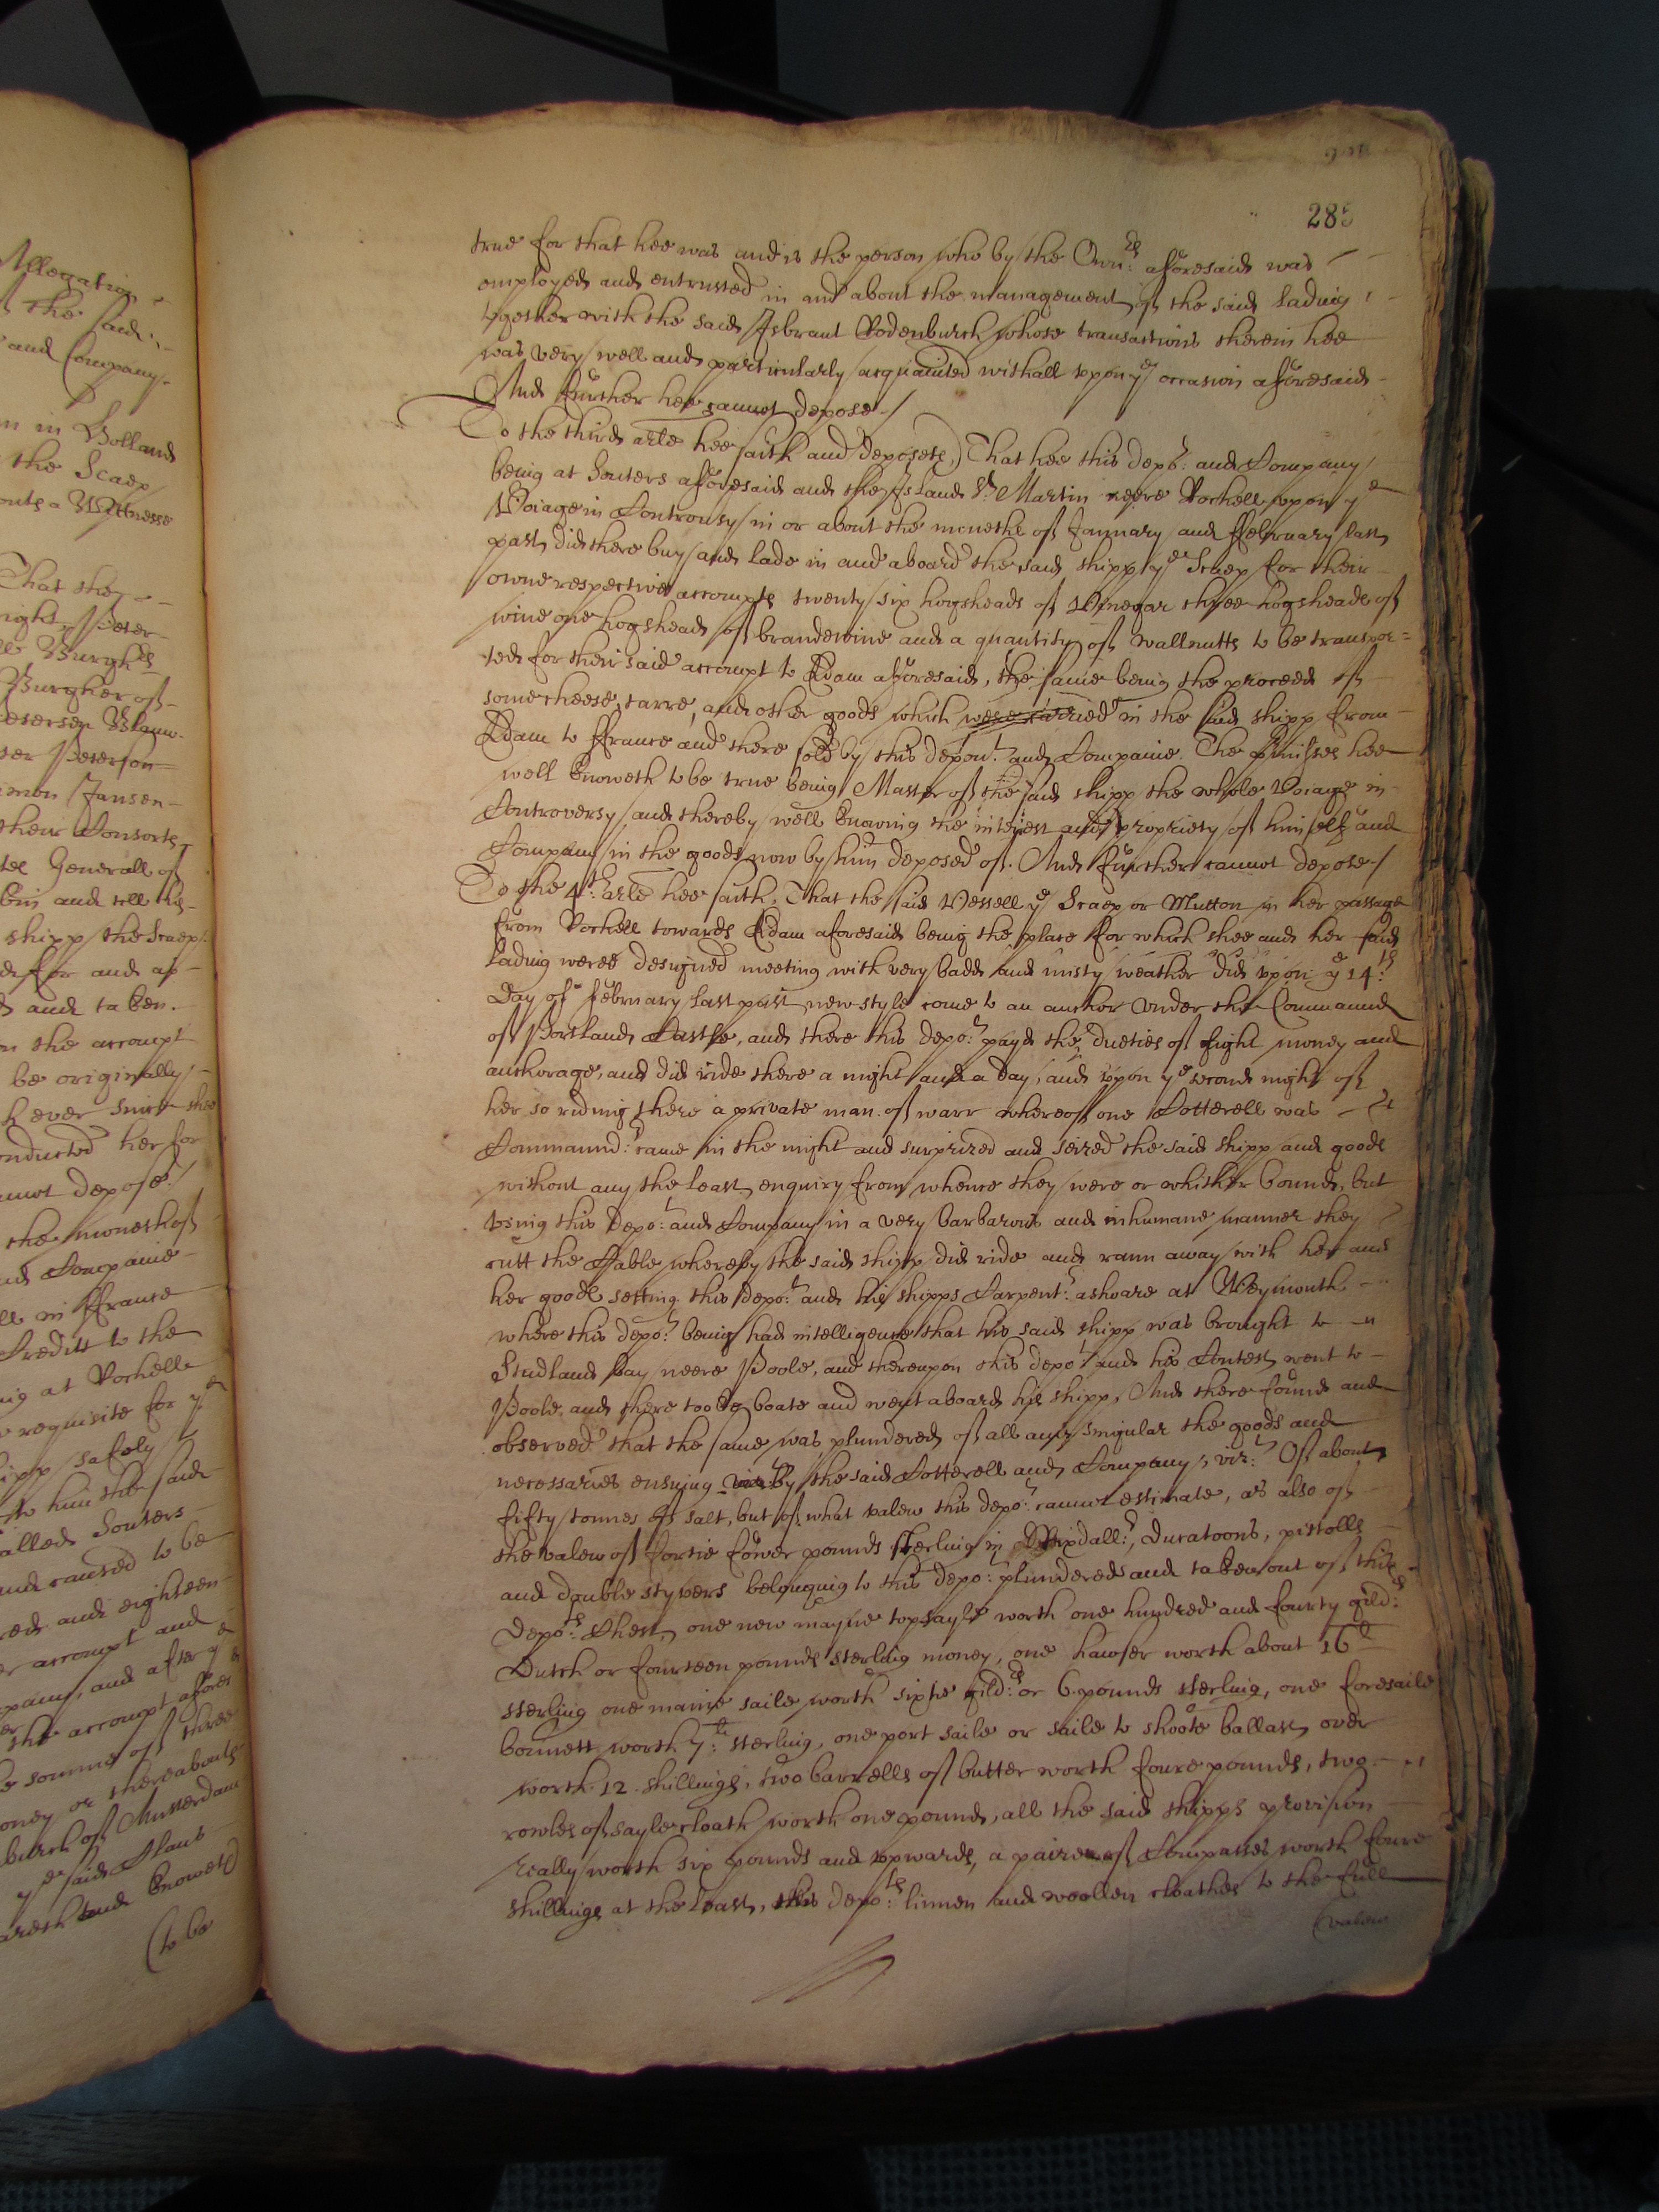 285
true for that hee was and is the person who by the Own:rs aforesaid was
employed and entrusted in and about the management of the said lading
together with the said Isbrant Rodenburch whose transactions therein hee
was very well and particularly acquainted withall upon ye occasion aforesaid
And further hee cannot depose./
To the third arle hee saith and deposeth, That hee this depo:t and Company
being at Souters aforesaid and the Island St Martin neere Rochell upon ye
Voiage in Controusy in or about the moneths of January and ffebruary last
past did there buy and lade in and aboard the said shipp ye Scaep for their
owne respective accompts twenty six hogsheads of Vinegar three hogsheads of
wine one hogshead of brandewine and a quantity of wallnutts to be transpor=
ted for their said accompt to Adam aforesaid, the same being the proceed of
some cheese, tarre, and other goods which were carried in the said shipp from
Adam to ffrance and there sold by this depon:t and Companie. The premisses hee
well knoweth to be true being Master of the said shipp the whole Voiage in
Controversy and thereby well knowing the interest and propriety of himself and
Company in the goods now by him deposed of. And further cannot depose/
To the 4th: arle hee saith, That the said Vessell ye Scaep or Mutton in her passage
from Rochell towards Adam aforesaid being the place for which shee and her said
lading weree designed meeting with very badd and misty weather did upon ye 14th:
day of february last past new style come to an anchor under the Command
of Portland Castle, and there this depo:t payd the dueties of light money and
anchorage, and did ride there a night and a day, and upon ye second night of
her so riding there a private man of warr whereof one Cotterell was
Command:r came in the night and surprized and seized the said shipp and goods
without any the least enquiry from whence they were or whither bound, but
using this depo:t and Company in a very barbarous and inhumane manner they
cutt the Cable whereby the said shipp did ride and rann away with her and
her goods setting this depo:t and his shipps Carpent:r ashoare at Weymouth
where this depo:t being had intelligence that his said shipp was brought to
Studland bay neere Poole, and thereupon this depo:t and his Contest went to
Poole, and there tooke boate and went aboard his shipp, And there found and
observed that the same was plundered of all and singular the goods and
necessaries ensuing by the said Cotterell and Company, viz:t Of about
fifty tonnes of salt, but of what valew this depo:t cannot estimate, as also of
the valew of fortie fower pounds sterling in Rixdall:rs, Ducatoons, pistolls
and double styvers belonging to this depo:t plundered and taken out of this
depo:ts Chest, one new mayne topsayle worth one hundred and fourty gild:s
Dutch or fourteen pounds sterling money, one hawser worth about 16li
sterling one maine saile worth sixtie gild:rs or 6 pounds sterling, one foresaile
bonnett worth 7:li sterling, one port saile or saile to shoote ballast over
worth 12 shillings, two barrells of butter worth foure pounds, two
rowles of sayle cloath worth one pound, all the said shipps provision
really worth six pounds and upwards, a paire of Compasses worth foure
shillings at the least, this depo:ts linnen and woollen cloathes to the full
(valew
Allegation
the said
and Company
in Holland
the Scaep
a Wittnesse
That they
Burgher of
Peterson
Jansen
their Consorts
Generall of
shipp the Scaep
for and as
and taken.
the accompt
be originally
ever since shee
conducted her for
depose./
the moneth of
Companie
in ffrance
Creditt to the
at Rochell
requisite for ye
shipp safely
to him the said
called Souters
and caused to be
and eighteen
accompt and
and after ye
the accompt afores
summe of three
money or thereabouts
of Amsterdam
ye said
knoweth
(to be